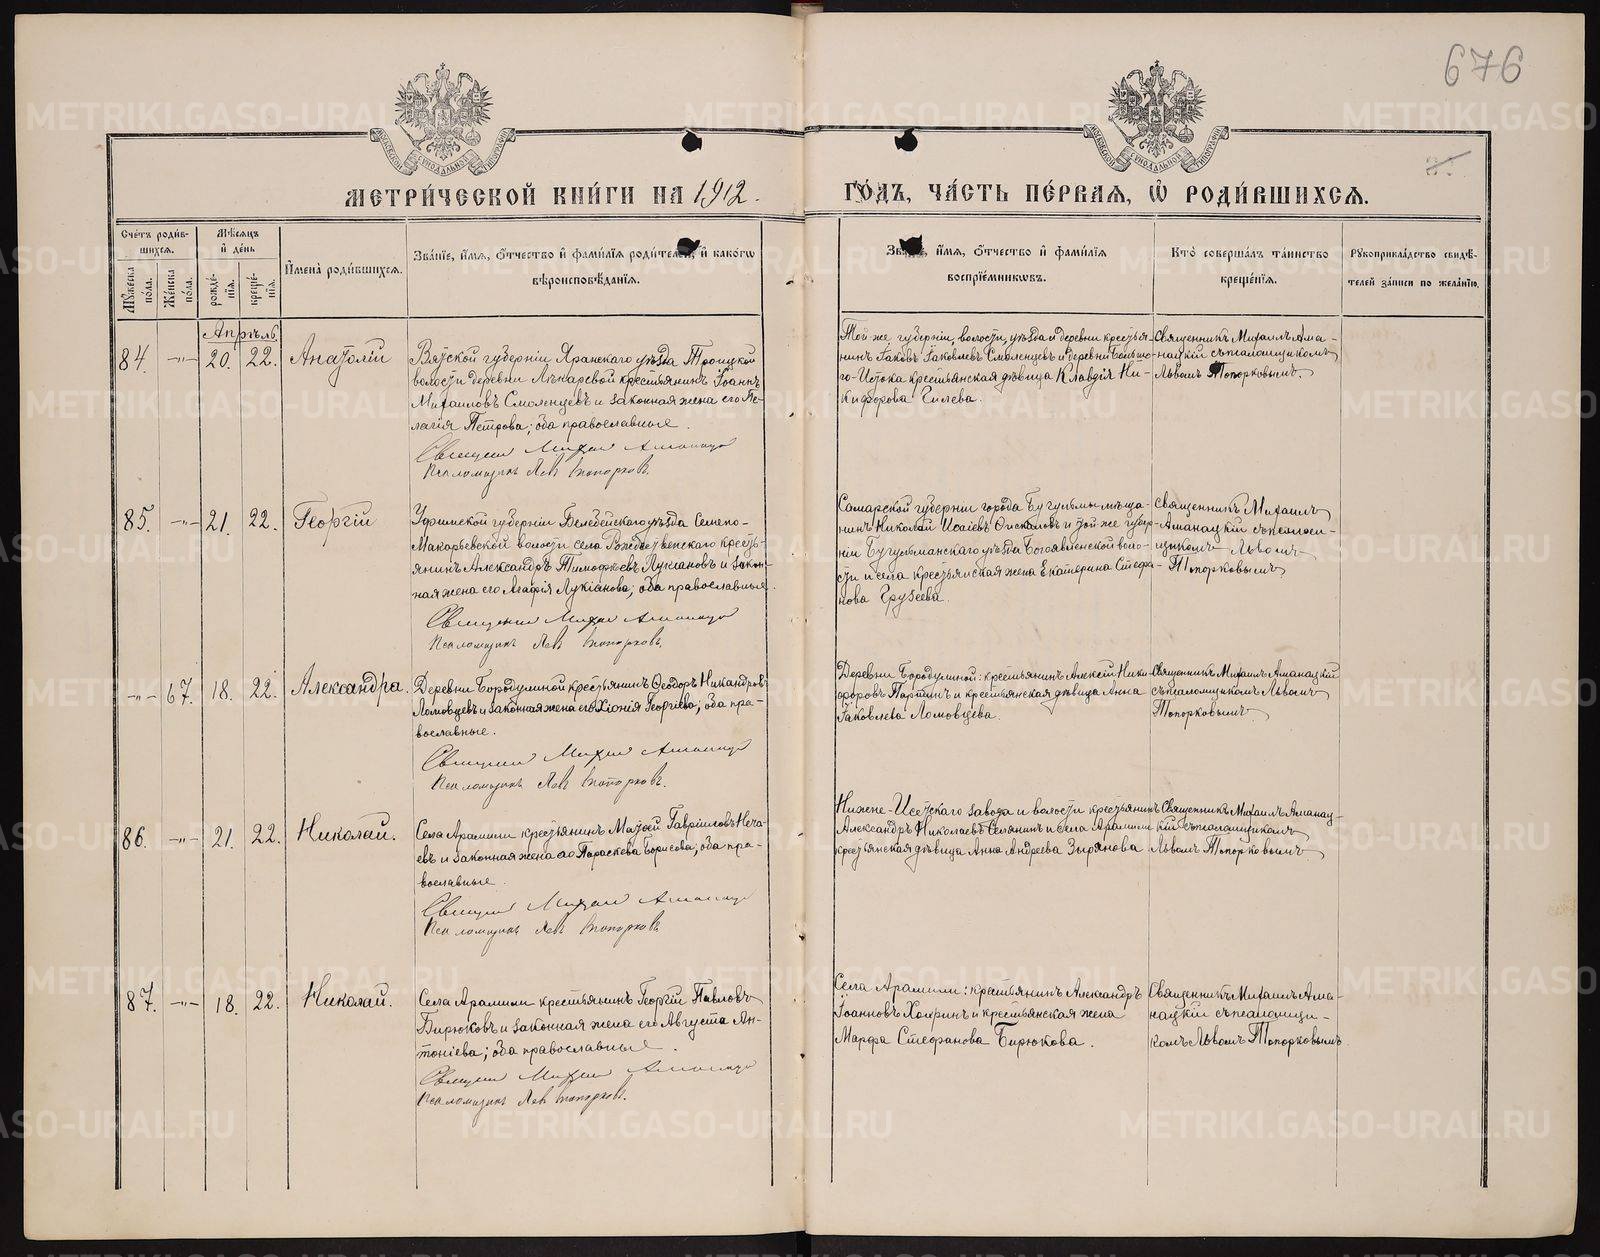 676
МЕТРИ́ЧЕСКОЙ КНИ́ГИ НА 1912.
ГО́ДЪ, ЧА́СТЬ ПЕ́РВАѦ, Ѡ҆ РОДИ́ВШИХСѦ.
Сче́тъ роди́в-
шихсѧ.
Мꙋ́жеска по́ла.
Же́нска по́ла.
Мѣ́сѧцъ
и҆ де́нь
рожде́-
нїѧ.
креще́-
нїѧ.
И҆мена̀ роди́вшихсѧ.
Зва́нїе, и҆́мѧ, ѻ҆́тчество и҆ фами́лїѧ роди́телей, и҆ како́гѡ
вѣроисповѣ́данїѧ.
Зва́нїе, и҆́мѧ, ѻ҆́тчество и҆ фами́лїѧ
воспрїе́мникѡвъ.
Кто̀ соверша́лъ та́инство
креще́нїѧ.
Рꙋкоприкла́дство свидѣ́-
телей за́писи по жела́нїю.
Апрѣль
84. -"- 20. 22. Анатолій
Вятской губерніи Яранскаго уѣзда Троицкой
волости деревни Лѣкаревой крестьянинъ Іоаннъ
Михаиловъ Смоленцевъ и законная жена его Пе-
лагія Петрова; оба православные.
Священникъ Михаилъ Аманацкій
Псаломщикъ Левъ Топорковъ.
Той же губерніи, волости, уѣзда и деревни крестья-
нинъ Іаковъ Іаковлевъ Смоленцевъ и деревни Большо-
го-Истока крестьянская дѣвица Клавдія Ни-
кифорова Гилева.
Священникъ Михаилъ Ама-
нацкій съ псаломщикомъ
Львомъ Топорковымъ.
85. -"- 21. 22. Георгій
Уфимской губерніи Белебейскаго уѣзда Семено-
Макарьевской волости села Рождественскаго кресть-
янинъ Александръ Тимофеевъ Лукіановъ и закон-
ная жена его Агафія Лукіанова; оба православные.
Священникъ Михаилъ Аманацкій
Псаломщикъ Левъ Топорковъ.
Самарской губерніи города Бугульмы мѣща-
нинъ Николай Исаіевъ и той же губер-
ніи Бугульманскаго уѣзда Богоявленской воло-
сти и села крестьянская жена Екатерина Стефа-
нова Грузеева.
Священникъ Михаилъ
Аманацкій съ псалом-
щикомъ Львомъ
Топорковымъ
-"- 67. 18. 22. Александра.
Деревни Бородулиной крестьянинъ Ѳеодоръ Никандровъ
Ломовцевъ и законная жена его Хіонія Георгіева; оба пра-
вославные.
Священникъ Михаилъ Аманацкій
Псаломщикъ Левъ Топорковъ.
Деревни Бородулиной: крестьянинъ Алексій Ники-
форовъ Партинъ и крестьянская дѣвица Анна
Іаковлева Ломовцева.
Священникъ Михаилъ Аманацкій
съ псаломщикомъ Львомъ
Топорковымъ
86. -"- 21. 22. Николай.
Села Арамили крестьянинъ Матѳей Гавріиловъ Неча-
евъ и законная жена его Параскева Борисова; оба пра-
вославные.
Священникъ Михаилъ Аманацкій
Псаломщикъ Левъ Топорковъ
Нижне-Исетскаго завода и волости крестьянинъ
Александръ Николаевъ Селянинъ и села Арамили
крестьянская дѣвица Анна Андреева Зырянова
Священникъ Михаилъ Аманац-
кій съ псаломщикомъ
Львомъ Топорковымъ
87. -"- 18. 22. Николай.
Села Арамили крестьянинъ Георгій Павловъ
Бирюковъ и законная жена его Августа Ан-
тоніева; оба православные.
Священникъ Михаилъ Аманацкій
Псаломщикъ Левъ Топорковъ.
Села Арамили: крестьянинъ Александръ
Іоанновъ Хомринъ и крестьянская жена
Марфа Стефанова Бирюкова.
Священникъ Михаилъ Ама-
нацкій съ псаломщи-
комъ Львомъ Топорковымъ
METRIKI.GASO-URAL.RU